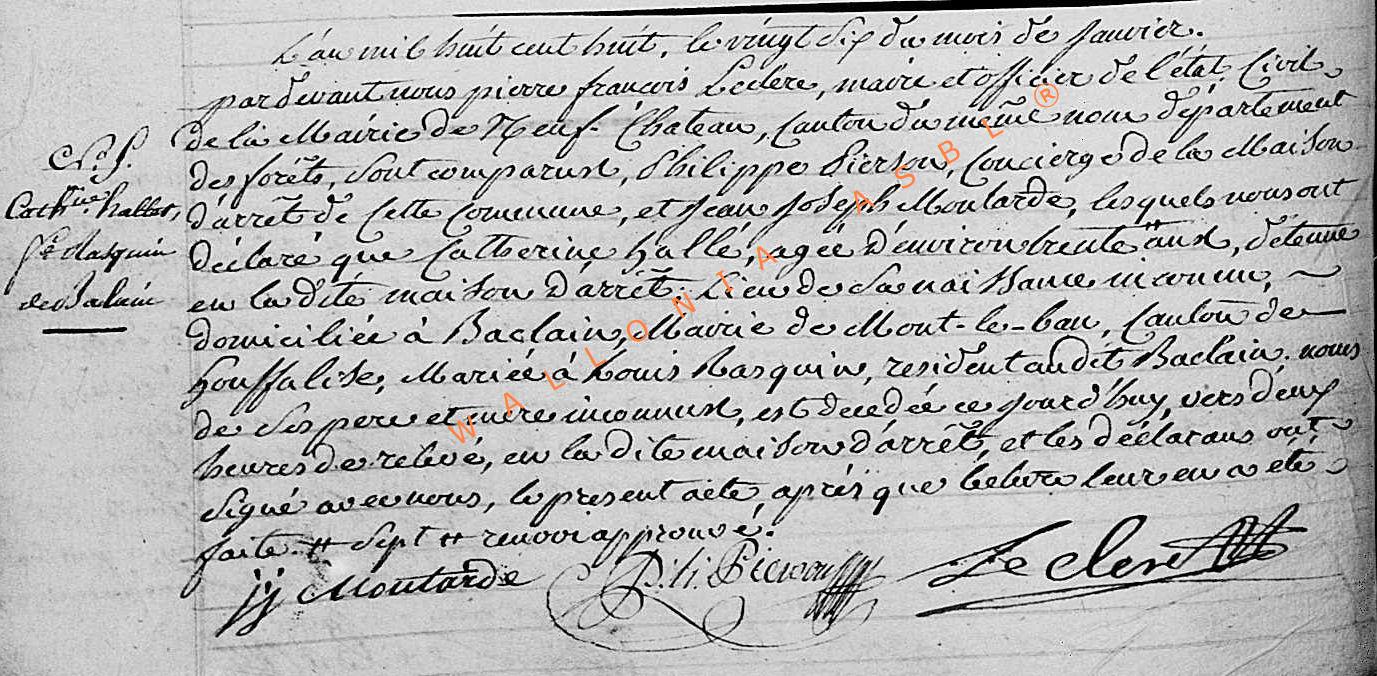 L'an mil huit cent huit, le vingt Six du mois de Janvier.
pardevant nous pierre françois Leclere, maire et officier de l'état Civil
de la Mairie de Neuf-Chateau, Canton du même nom département
des forêts, Sont comparus, Philippe Pierson, Concierge de la Maison
d'arrêt de Cette Commune, et Jean Joseph Moutarde, lesquels nous ont
déclaré que Catherine hallé, agée d'environ trente ans, détenue
en la dite maison d'arrêt, Lieu de Sa naissance inconnu,
domiciliée à Baclain, Mairie de Mont-le-ban, Canton de
houffalise, Mariée à Louis Rasquin, resident audit Baclain. noms
de Ses pere et mere inconnus, est decedée ce jourd'huy, vers deux
heures de relevé, en la dite maison d'arrêt, et les déclarans ont
Signé avec nous, le present acte, après que lecture leur en a eté
faite. # Sept # renvoi approuvé.
Cath.ne hallet,
fe. Rasquin
de Balain
jj Moutarde
Ph. Pierson
Leclere
WALLONIA ASBL ®